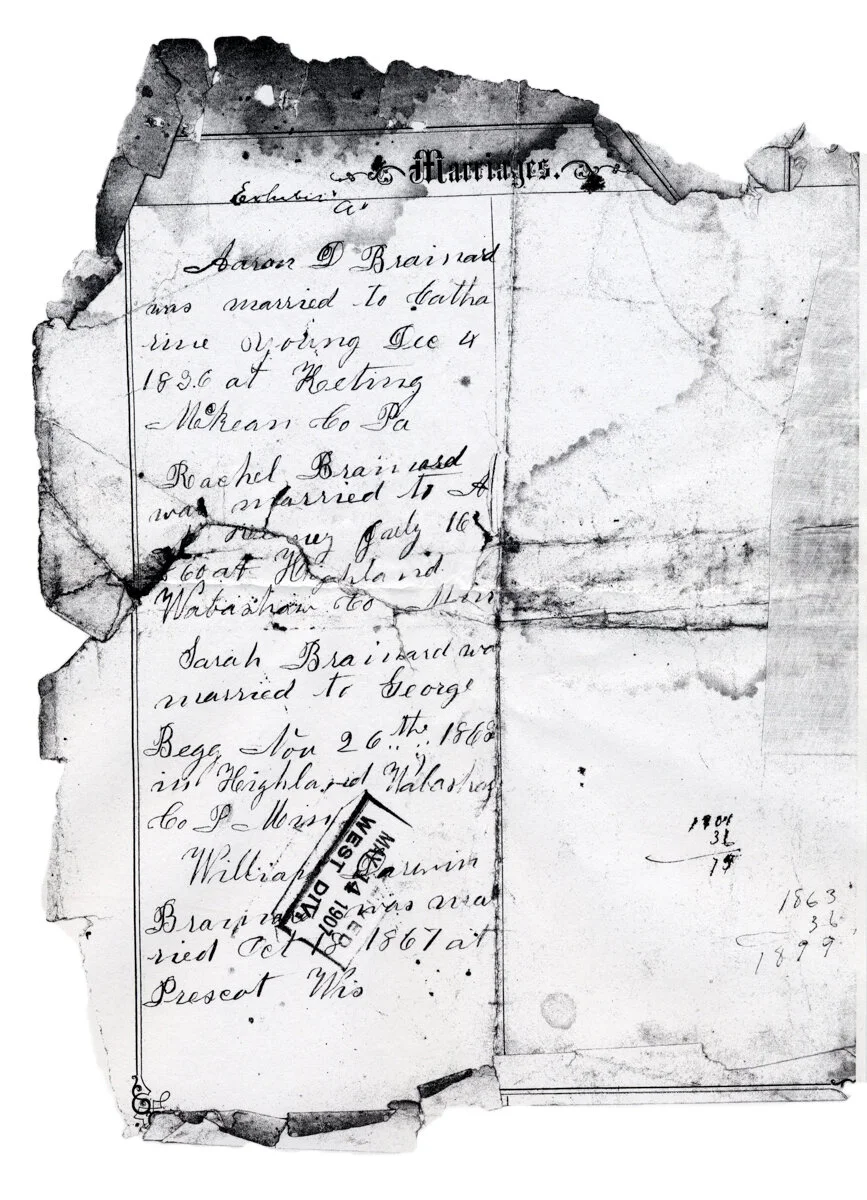 Marriages.
Exhibit "A"
Aaron D Brainard
was married to Catha
rine Young Dec 4
1836 at Keting
McKean Co Pa
Rachel Brainard
was married to A
July 16
60 at Highland
Wabashaw Co Min
Sarah Brainard wa
married to George
Begg Nov 26th 1868
in Highland Wabasha
Co Minn
William Darwin
was mar
ried Oct 1867 at
Prescot Wis
MAY 14 1907
WEST DIV.
36
1863
36
1899